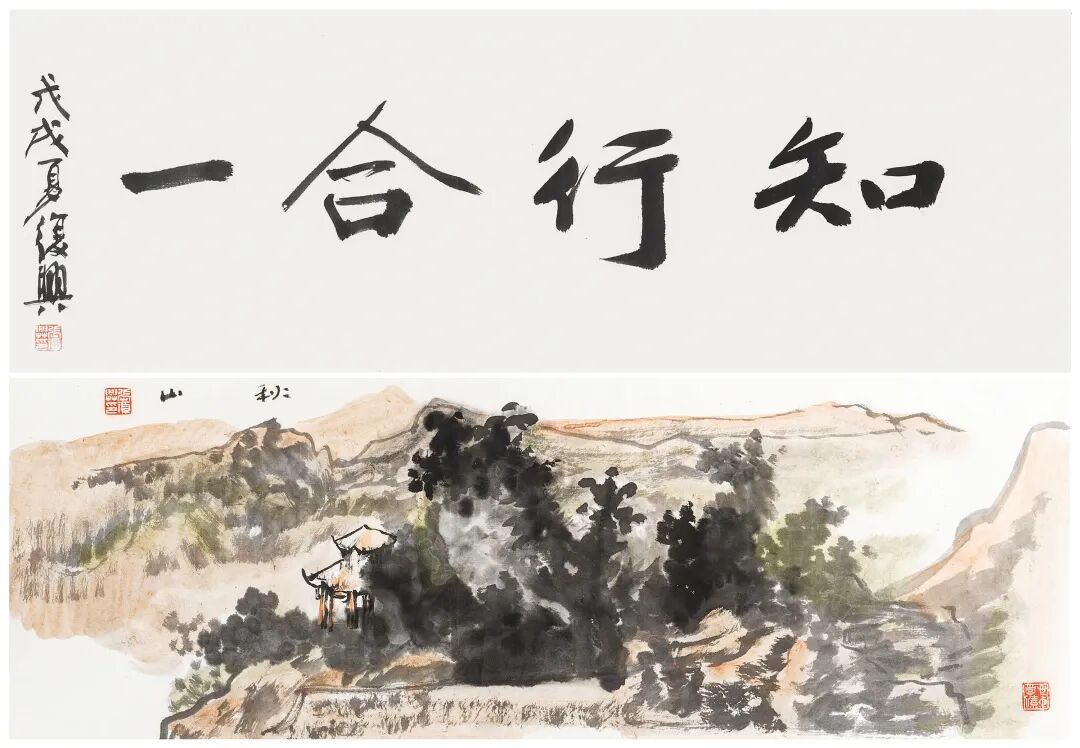 知行合一
戊戌夏復興
秋山